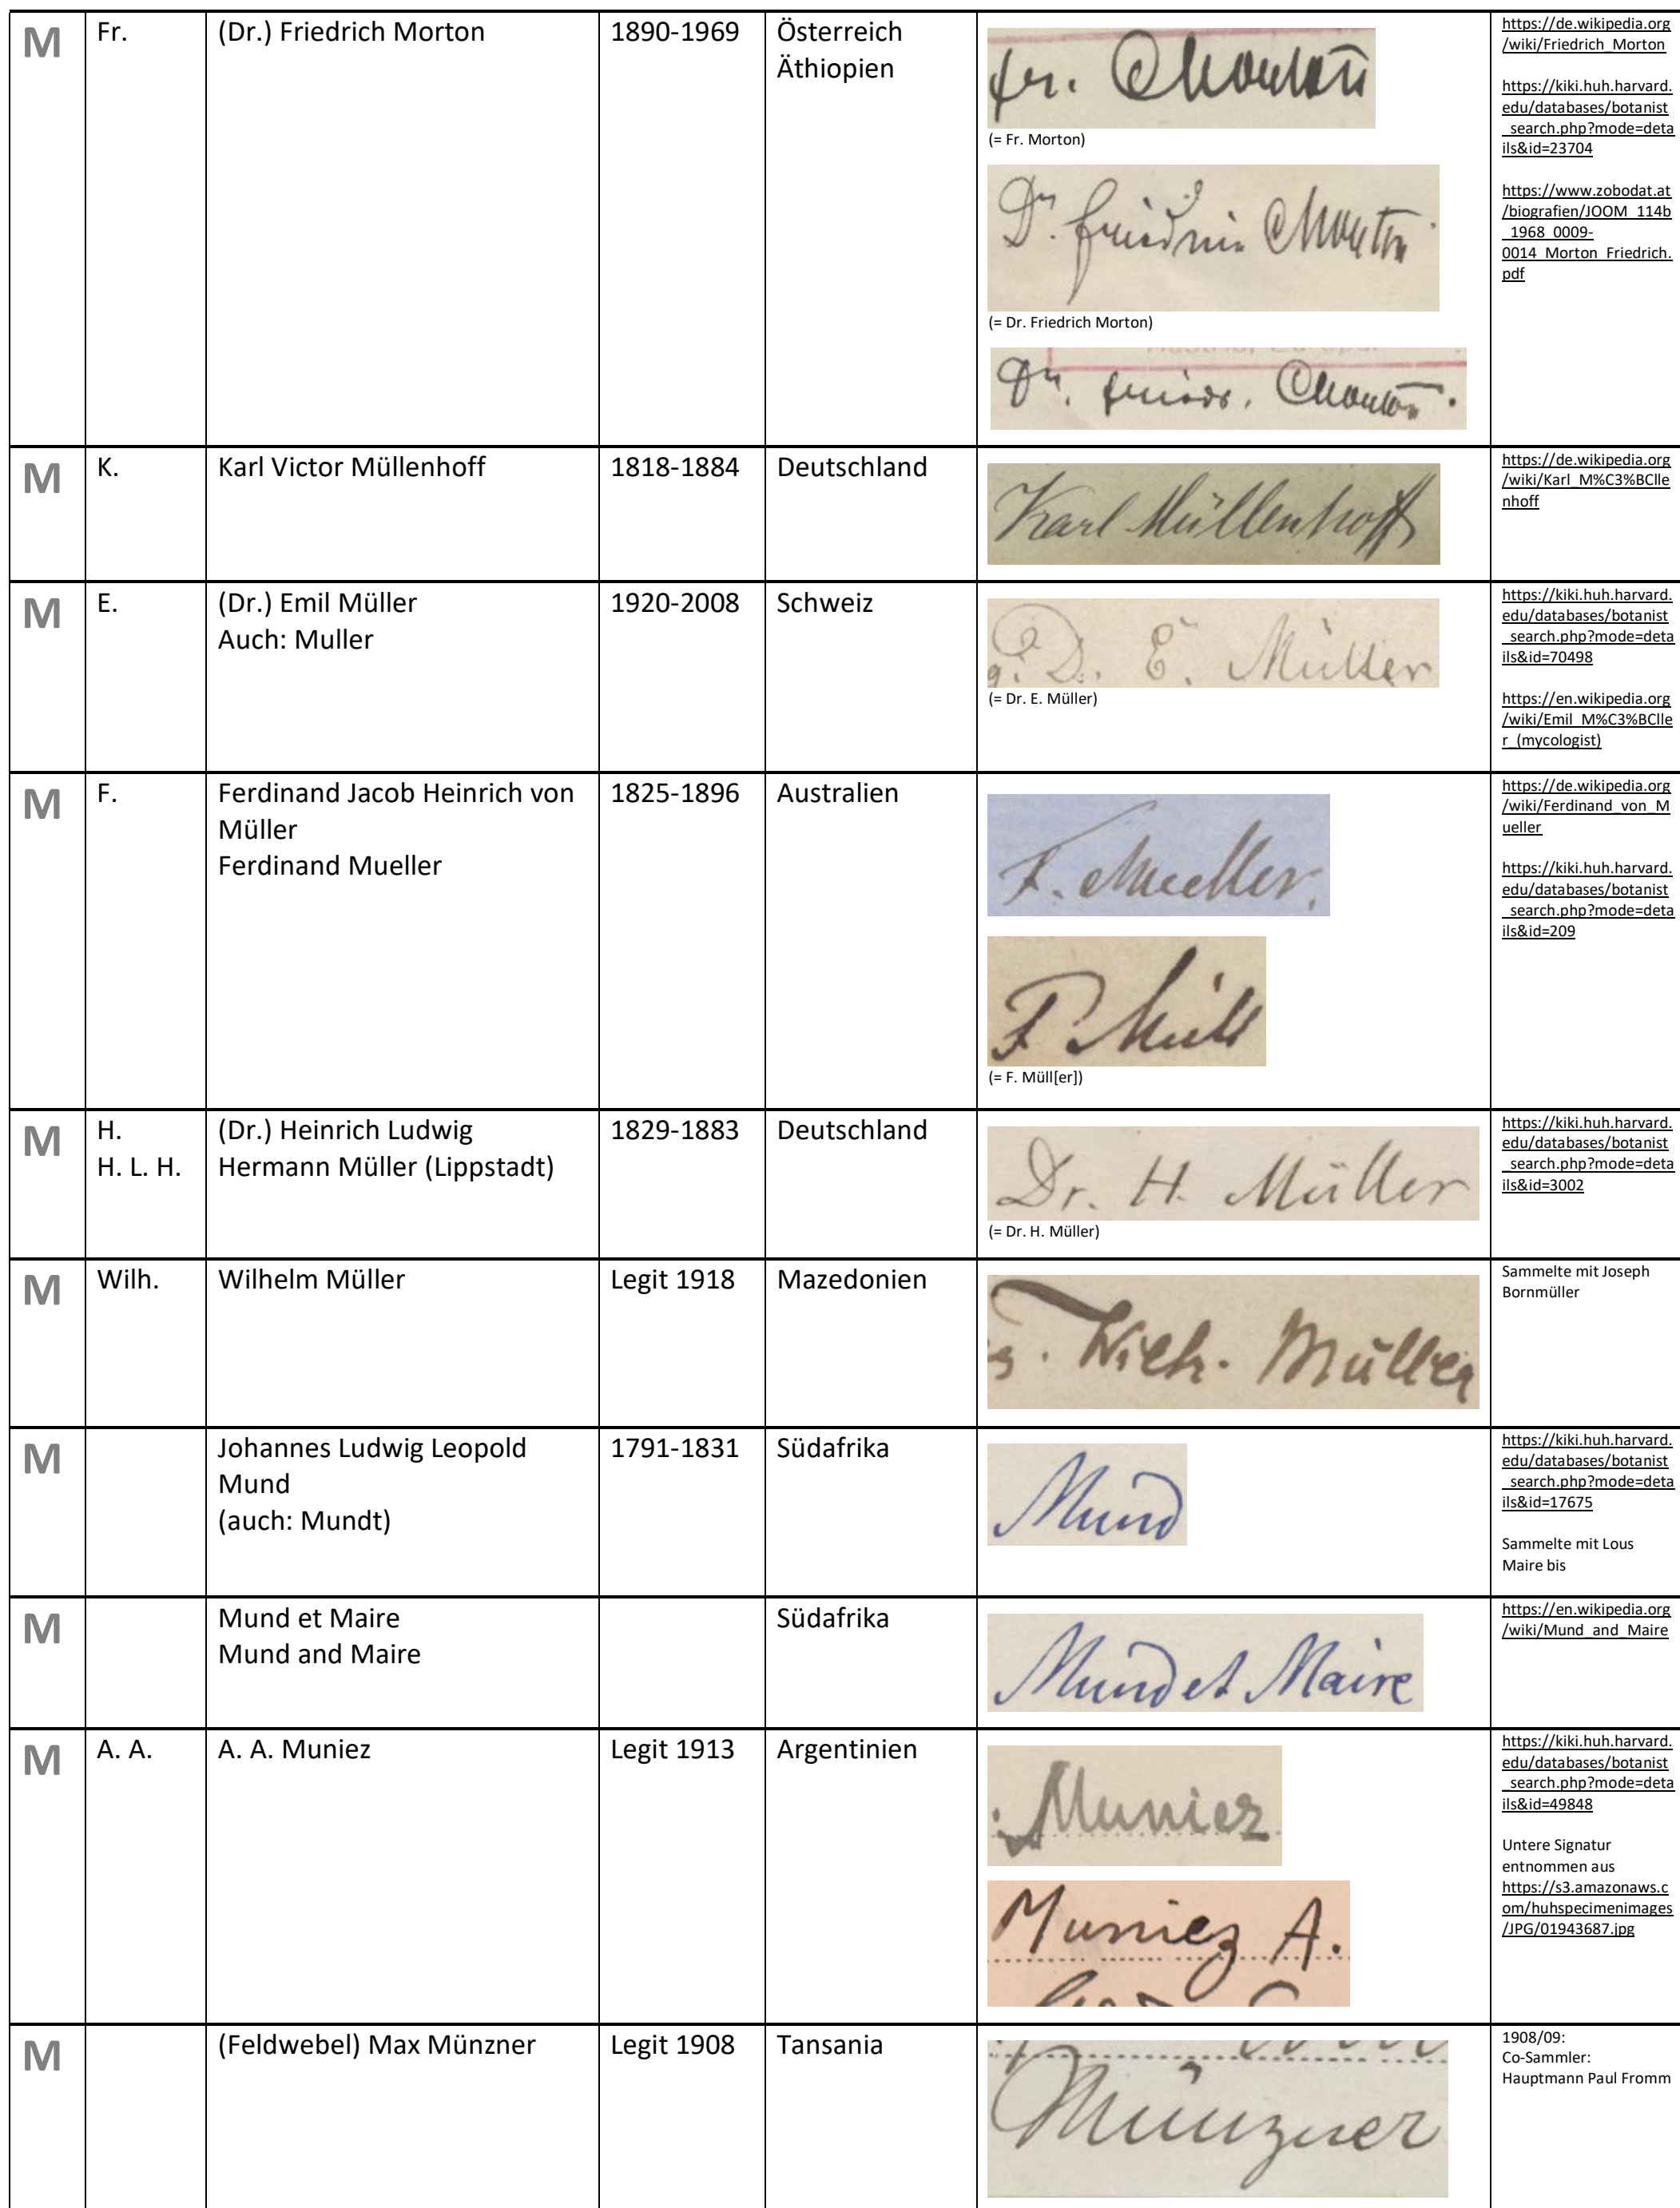 M
Fr.
(Dr.) Friedrich Morton
1890-1969
Österreich
Äthiopien
fr. Morton
(= Fr. Morton)
Dr. Friedrich Morton.
(= Dr. Friedrich Morton)
Dr. Friedr. Morton.
https://de.wikipedia.org
/wiki/Friedrich_Morton
https://kiki.huh.harvard.
edu/databases/botanist
_search.php?mode=deta
ils&id=23704
https://www.zobodat.at
/biografien/JOOM_114b
_1968_0009-
0014_Morton_Friedrich.
pdf
M
K.
Karl Victor Müllenhoff
1818-1884
Deutschland
Karl Müllenhoff
https://de.wikipedia.org
/wiki/Karl_M%C3%BClle
nhoff
M
E.
(Dr.) Emil Müller
Auch: Muller
1920-2008
Schweiz
D. E. Müller
(= Dr. E. Müller)
https://kiki.huh.harvard.
edu/databases/botanist
_search.php?mode=deta
ils&id=70498
https://en.wikipedia.org
/wiki/Emil_M%C3%BClle
r_(mycologist)
M
F.
Ferdinand Jacob Heinrich von
Müller
Ferdinand Mueller
1825-1896
Australien
F. Mueller.
F. Müll
(= F. Müll[er])
https://de.wikipedia.org
/wiki/Ferdinand_von_M
ueller
https://kiki.huh.harvard.
edu/databases/botanist
_search.php?mode=deta
ils&id=209
M
H.
H. L. H.
(Dr.) Heinrich Ludwig
Hermann Müller (Lippstadt)
1829-1883
Deutschland
Dr. H. Müller
(= Dr. H. Müller)
https://kiki.huh.harvard.
edu/databases/botanist
_search.php?mode=deta
ils&id=3002
M
Wilh.
Wilhelm Müller
Legit 1918
Mazedonien
Wilh. Müller
Sammelte mit Joseph
Bornmüller
M
Johannes Ludwig Leopold
Mund
(auch: Mundt)
1791-1831
Südafrika
Mund
https://kiki.huh.harvard.
edu/databases/botanist
_search.php?mode=deta
ils&id=17675
Sammelte mit Lous
Maire bis
M
Mund et Maire
Mund and Maire
Südafrika
Mund et Maire
https://en.wikipedia.org
/wiki/Mund_and_Maire
M
A. A.
A. A. Muniez
Legit 1913
Argentinien
Muniez
Muniez A.
https://kiki.huh.harvard.
edu/databases/botanist
_search.php?mode=deta
ils&id=49848
Untere Signatur
entnommen aus
https://s3.amazonaws.c
om/huhspecimenimages
/JPG/01943687.jpg
M
(Feldwebel) Max Münzner
Legit 1908
Tansania
Münzner
1908/09:
Co-Sammler:
Hauptmann Paul Fromm